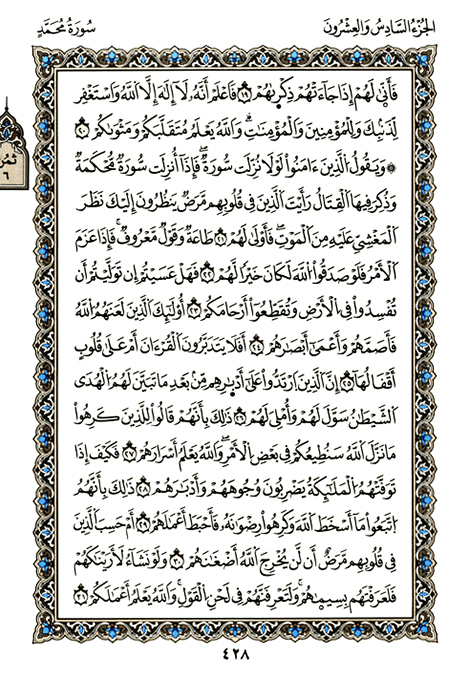 الجزء السادس والعشرون
سورة محمد
فَأَنَّىٰ لَهُمْ إِذَا جَآءَتْهُمْ ذِكْرٜىٰهُمْ ١٩ فَاعْلَمْ أَنَّهُۥ لَآ إِلَٰهَ إِلَّا اَللَّهُ وَاسْتَغْفِر
لِّذَنۢبِكَ وَلِلْمُؤْمِنِينَ وَالْمُؤْمِنَٰتِ وَاللَّهُ يَعْلَم مُّتَقَلَّبَكُمْ وَمَثْوَىٰكُمْ ٢٠
۞ وَيَقُولُ الَّذِينَ ءَامَنُوا۟ لَوْلَا نُزِّلَتْ سُورَةٌ فَإِذَآ أُنزِلَت سُّورَةٌ مُّحْكَمَةٌ
وَذُكِرَ فِيهَا الْقِتَالُ رَأَيْتَ الَّذِينَ فِي قُلُوبِهِم مَّرَضٌ يَنظُرُونَ إِلَيْكَ نَظَرَ
الْمَغْشِيِّ عَلَيْهِ مِنَ الْمَوْتِ فَأَوْلَىٰ لَهُمْ ٢١ طَاعَةٌ وَقَوْلٌ مَّعْرُوفٌ فَإِذَا عَزَمَ
الْأَمْرُ فَلَوْ صَدَقُوا۟ اللَّهَ لَكَانَ خَيْرًا لَّهُمْ ٢٢ فَهَلْ عَسَيْتُمْ إِن تَوَلَّيْتُمْ أَن
تُفْسِدُوا۟ فِي الْأَرْضِ وَتُقَطِّعُوٓا۟ أَرْحَامَكُمْ ٢٣ أُو۟لَٰٓئِكَ الَّذِينَ لَعَنَهُمُ اللَّهُ
فَأَصَمَّهُمْ وَأَعْمَىٰٓ أَبْصَٰرَهُمْ ٢٤ أَفَلَا يَتَدَبَّرُونَ الْقُرْءَانَ أَمْ عَلَىٰ قُلُوبٍ
أَقْفَالُهَا ٢٥ إِنَّ الَّذِينَ ارْتَدُّوا۟ عَلَىٰٓ أَدْبَٰرِهِم مِّنۢ بَعْدِ مَا تَبَيَّنَ لَهُمُ الْهُدَى
الشَّيْطَٰنُ سَوَّلَ لَهُمْ وَأُمْلِيَ لَهُمْ ٢٦ ذَٰلِكَ بِأَنَّهُمْ قَالُوا۟ لِلَّذِينَ كَرِهُوا۟
مَا نَزَّلَ اللَّهُ سَنُطِيعُكُمْ فِي بَعْضِ الْأَمْرِ وَاللَّهُ يَعْلَمُ أَسْرَارَهُمْ ٢٧ فَكَيْفَ إِذَا
تَوَفَّتْهُمُ الْمَلَٰٓئِكَةُ يَضْرِبُونَ وُجُوهَهُمْ وَأَدْبَٰرَهُمْ ٢٨ ذَٰلِكَ بِأَنَّهُمُ
اتَّبَعُوا۟ مَآ أَسْخَطَ اللَّهَ وَكَرِهُوا۟ رِضْوَٰنَهُۥ فَأَحْبَطَ أَعْمَٰلَهُمْ ٢٩ أَمْ حَسِبَ الَّذِينَ
فِي قُلُوبِهِم مَّرَضٌ أَن لَّن يُخْرِجَ اللَّهُ أَضْغَٰنَهُمْ ٣٠ وَلَوْ نَشَآءُ لَأَرَيْنَٰكَهُمْ
فَلَعَرَفْتَهُم بِسِيمَٰهُمْ وَلَتَعْرِفَنَّهُمْ فِي لَحْنِ الْقَوْلِ وَاللَّهُ يَعْلَمُ أَعْمَٰلَكُمْ ٣١
٤٢٨